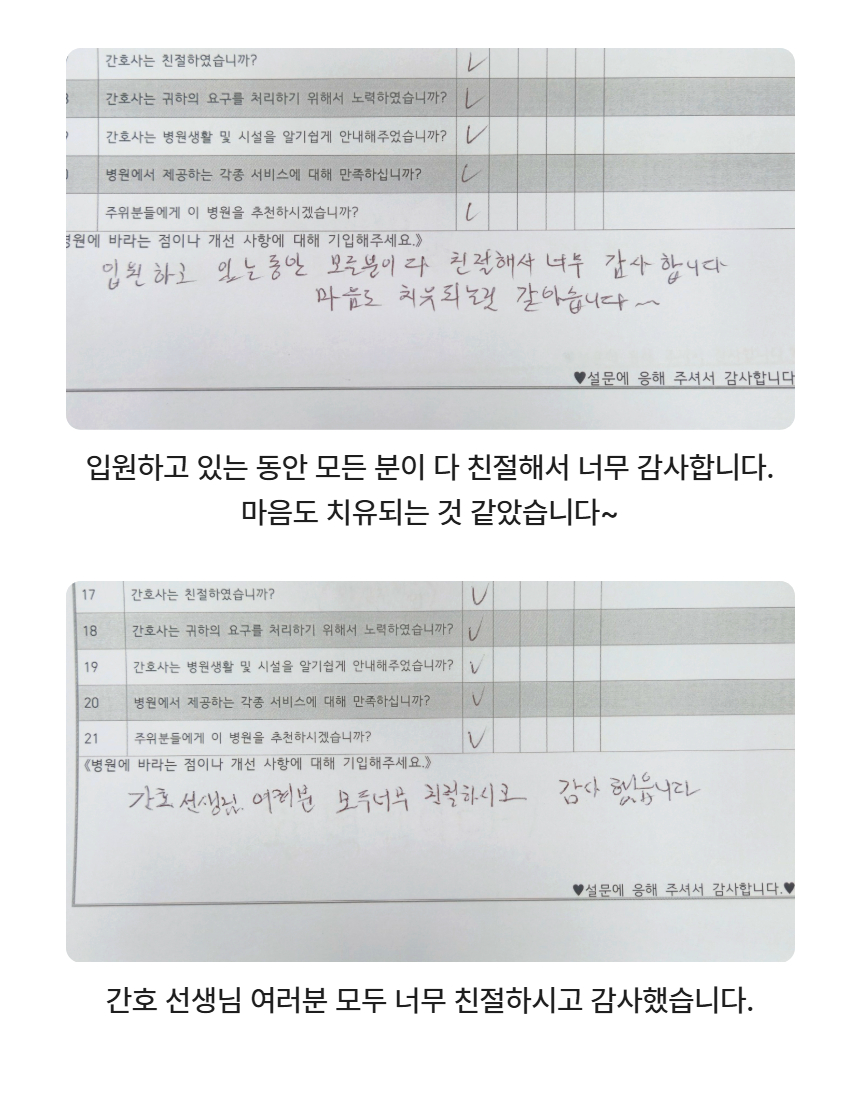 간호사는 친절하였습니까?
간호사는 귀하의 요구를 처리하기 위해서 노력하였습니까?
간호사는 병원생활 및 시설을 알기쉽게 안내해주었습니까?
병원에서 제공하는 각종 서비스에 대해 만족하십니까?
주위분들에게 이 병원을 추천하시겠습니까?
병원에 바라는 점이나 개선 사항에 대해 기입해주세요.》
입원하고 있는동안 모든분이 다 친절해서 너무 감사합니다
마음도 치유되는것 같아습니다~
♥설문에 응해 주셔서 감사합니다
입원하고 있는 동안 모든 분이 다 친절해서 너무 감사합니다.
마음도 치유되는 것 같았습니다~
17 간호사는 친절하였습니까?
18 간호사는 귀하의 요구를 처리하기 위해서 노력하였습니까?
19 간호사는 병원생활 및 시설을 알기쉽게 안내해주었습니까?
20 병원에서 제공하는 각종 서비스에 대해 만족하십니까?
21 주위분들에게 이 병원을 추천하시겠습니까?
《병원에 바라는 점이나 개선 사항에 대해 기입해주세요.》
간호선생님 여러분 모두너무 친절하시고 감사했습니다
♥설문에 응해 주셔서 감사합니다.♥
간호 선생님 여러분 모두 너무 친절하시고 감사했습니다.